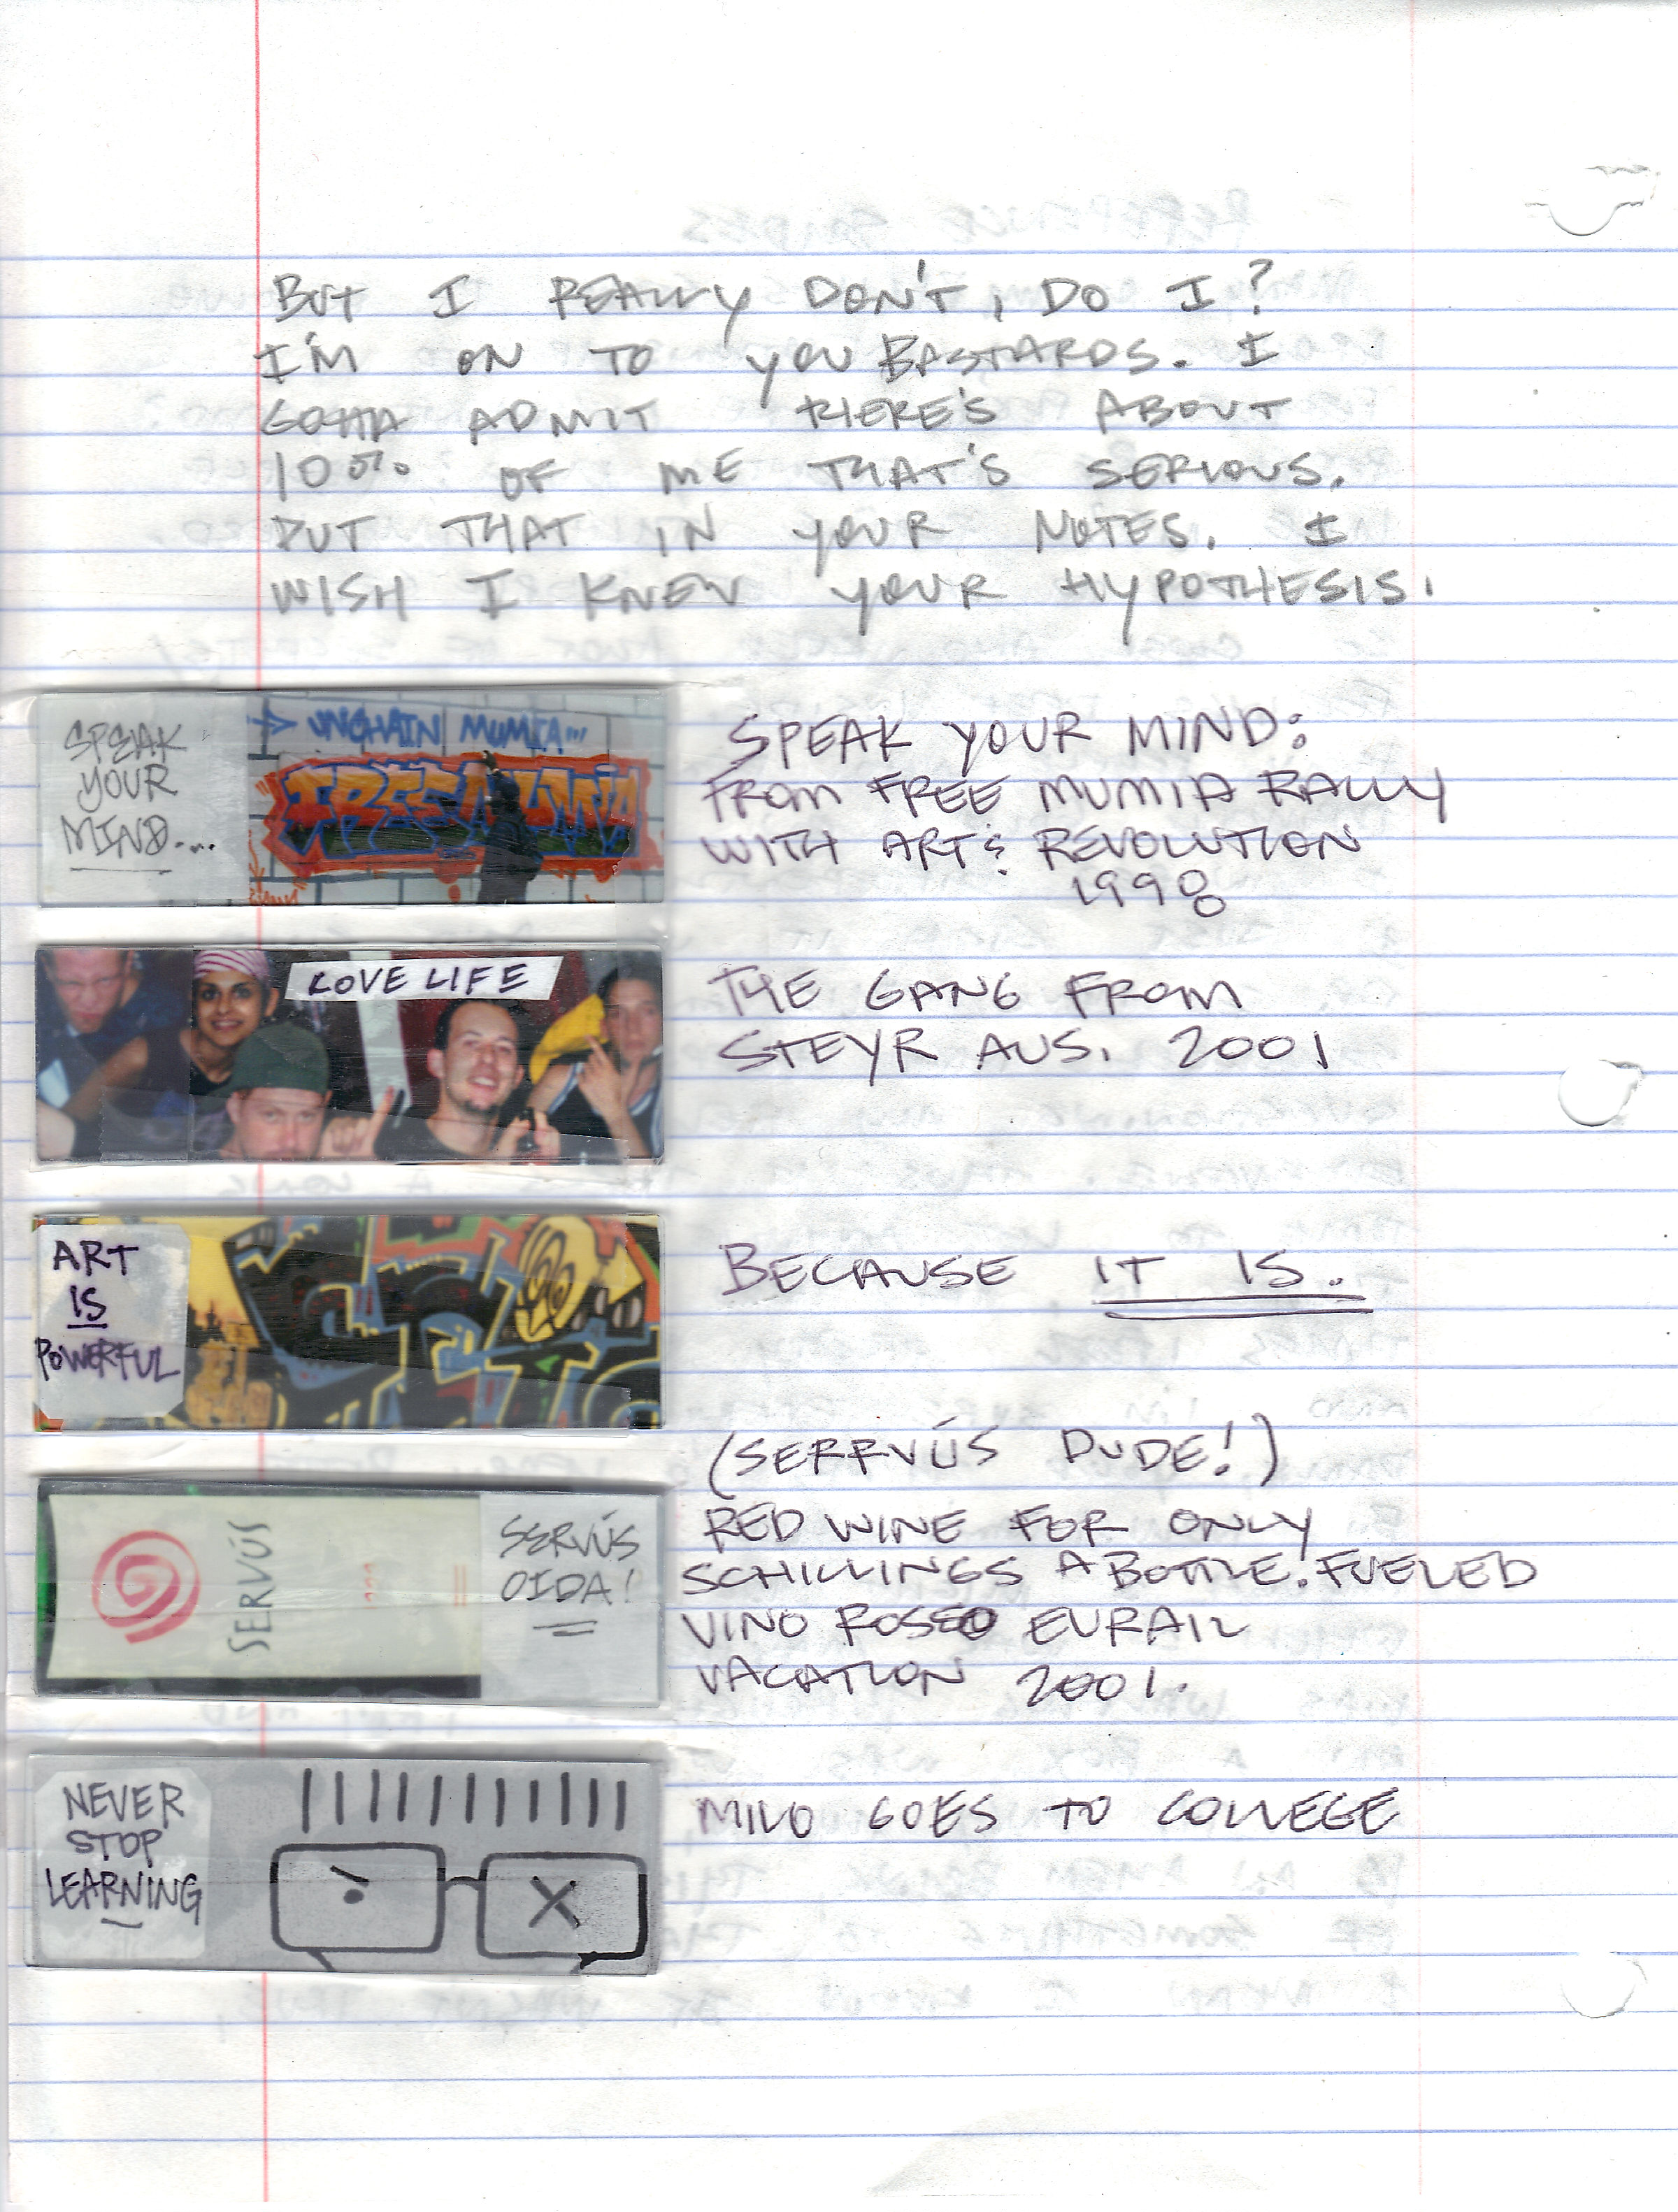 BUT I REALLY DON'T, DO I?
I'M ON TO YOU BASTARDS. I
GOTTA ADMIT THERE'S ABOUT
10% OF ME THAT'S SERIOUS.
PUT THAT IN YOUR NOTES. I
WISH I KNEW YOUR HYPOTHESIS.
SPEAK
YOUR
MIND...
UNCHAIN MUMIA...
FREE MUMIA
SPEAK YOUR MIND:
FROM FREE MUMIA RALLY
WITH ART & REVOLUTION
1998
LOVE LIFE
THE GANG FROM
STEYR AUS. 2001
ART
IS
POWERFUL
BECAUSE IT IS.
SERVÚS
SERVÚS
OIDA!
(SERRVÚS DUDE!)
RED WINE FOR ONLY
SCHILLINGS A BOTTLE. FUELED
VINO ROSSO EURAIL
VACATION 2001.
NEVER
STOP
LEARNING
MILO GOES TO COLLEGE